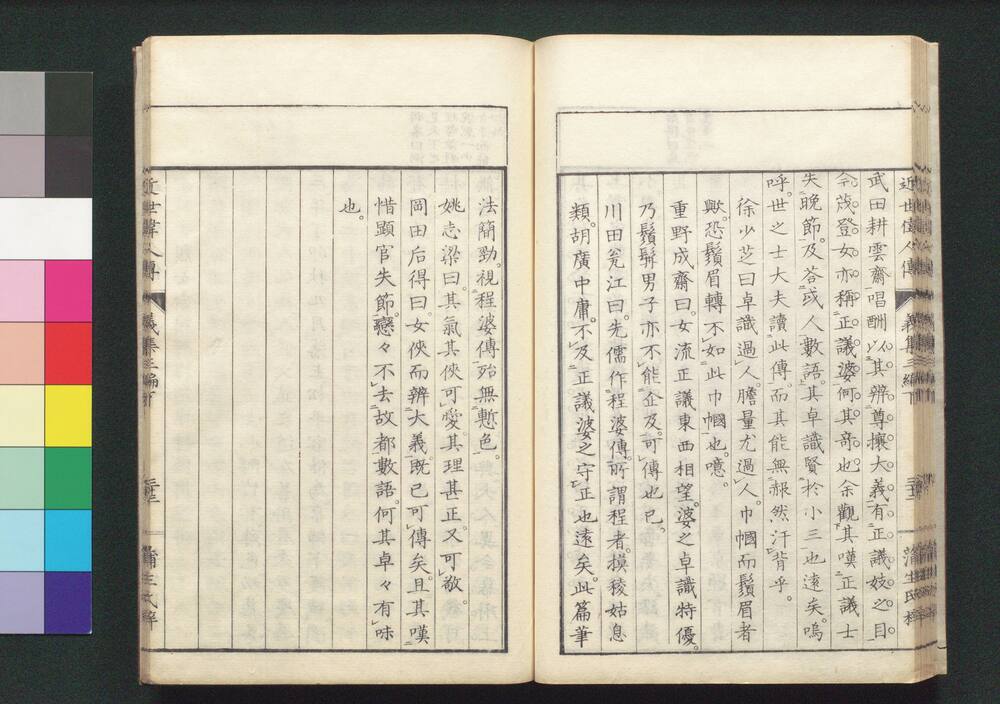 近世偉人傳 義集三編下 蒲生氏梓
武田耕雲齋唱酬以其辨尊攘大義有正議妓之目
今茂登女亦稱正議婆何其奇也余觀其嘆正議士
失晚節及答或人數語其卓識賢於小三也遠矣嗚
呼世之士大夫讀此傳而其能無赧然汗背乎
徐少芝曰卓識過人膽量尤過人巾幗而鬚眉者
歟恐鬚眉轉不如此巾幗也噫
重野成齋曰女流正議東西相望婆之卓識特優
乃鬚髯男子亦不能企及可傳也已
川田瓮江曰先儒作程婆傳所謂程者摸稜姑息
類胡廣中庸不及正議婆之守正也遠矣此篇筆
法簡勁視程婆傳殆無慙色
姚志梁曰其氣其俠可愛其理甚正又可敬
岡田后得曰女俠而辨大義既已可傳矣且其嘆
惜顯官失節戀々不去故都數語何其卓々有味
也
近世偉人傳 義集三編下 蒲生氏梓